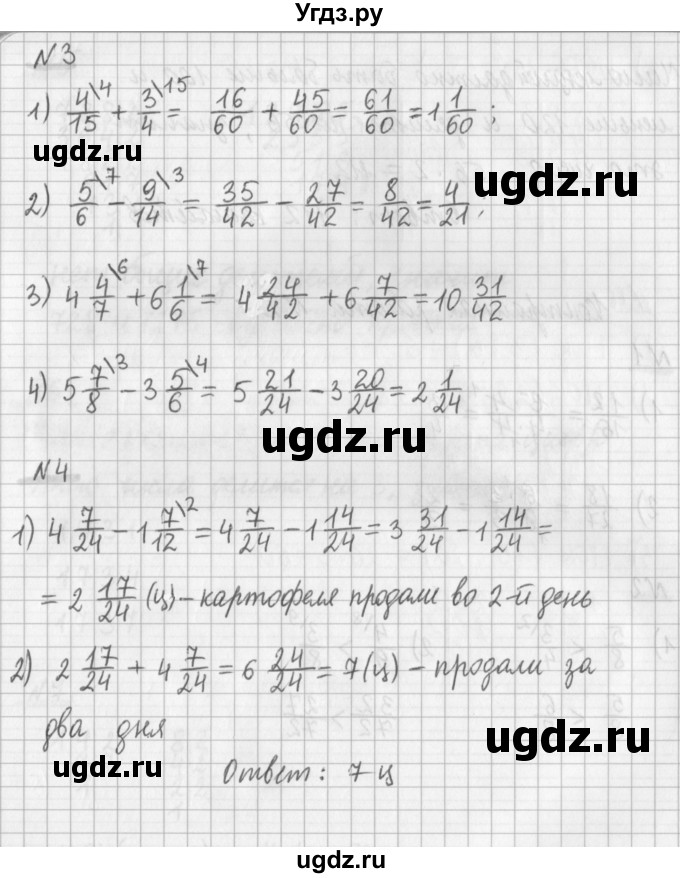 Угдз.ру
№3
1) 4/15\4 + 3/4\15 = 16/60 + 45/60 = 61/60 = 1 1/60 ;
ugdz.ru
2) 5/6\7 − 9/14\3 = 35/42 − 27/42 = 8/42 = 4/21 ;
ugdz.ru
3) 4 4/7\6 + 6 1/6\7 = 4 24/42 + 6 7/42 = 10 31/42
4) 5 7/8\3 − 3 5/6\4 = 5 21/24 − 3 20/24 = 2 1/24
ugdz.ru
№4
1) 4 7/24 − 1 7/12\2 = 4 7/24 − 1 14/24 = 3 31/24 − 1 14/24 =
= 2 17/24 (ц) – картофеля продали во 2-й день
2) 2 17/24 + 4 7/24 = 6 24/24 = 7 (ц) – продали за
два дня
ugdz.ru
ugdz.ru
Ответ: 7 ц
ugdz.ru